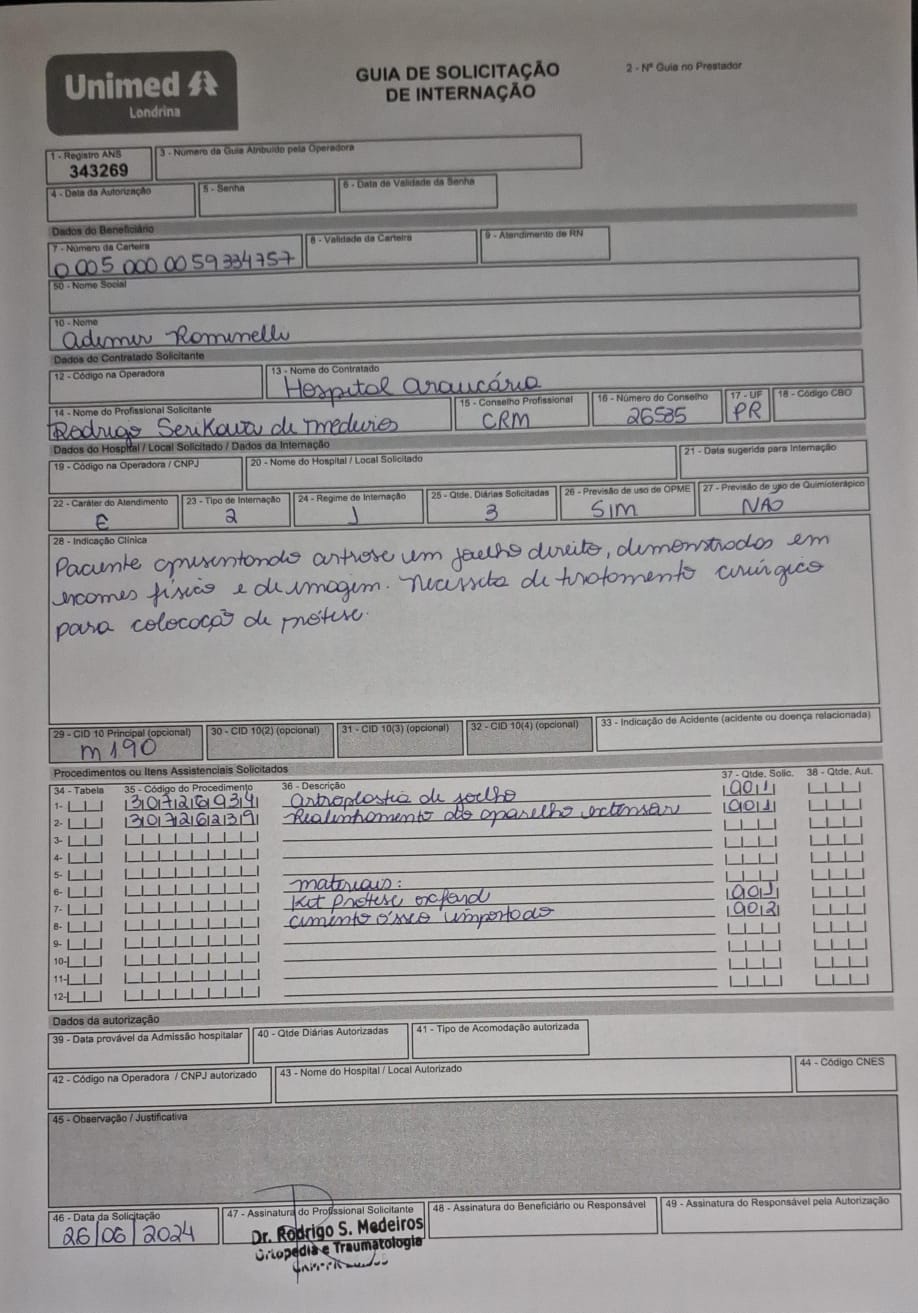 Unimed
Londrina
GUIA DE SOLICITAÇÃO
DE INTERNAÇÃO
2 - Nº Guia no Prestador
1 - Registro ANS
343269
3 - Número da Guia Atribuído pela Operadora
4 - Data da Autorização
5 - Senha
6 - Data de Validade da Senha
Dados do Beneficiário
7 - Número da Carteira
0 005 000 00 59334757
8 - Validade da Carteira
9 - Atendimento de RN
50 - Nome Social
10 - Nome
Ademir Rominelli
Dados do Contratado Solicitante
12 - Código na Operadora
13 - Nome do Contratado
Hospital Araucária
14 - Nome do Profissional Solicitante
Rodrigo Serikawa de Medeiros
15 - Conselho Profissional
CRM
16 - Número do Conselho
26535
17 - UF
PR
18 - Código CBO
Dados do Hospital / Local Solicitado / Dados da Internação
19 - Código na Operadora / CNPJ
20 - Nome do Hospital / Local Solicitado
21 - Data sugerida para Internação
22 - Caráter do Atendimento
E
23 - Tipo de Internação
2
24 - Regime de Internação
1
25 - Qtde. Diárias Solicitadas
3
26 - Previsão de uso de OPME
SIM
27 - Previsão de uso de Quimioterápico
NAO
28 - Indicação Clínica
Paciente apresentando artrose em joelho direito, demonstrados em
exames físico e de imagem. Necessita de tratamento cirúrgico
para colocação de prótese.
29 - CID 10 Principal (opcional)
M190
30 - CID 10(2) (opcional)
31 - CID 10(3) (opcional)
32 - CID 10(4) (opcional)
33 - Indicação de Acidente (acidente ou doença relacionada)
Procedimentos ou Itens Assistenciais Solicitados
34 - Tabela
35 - Código do Procedimento
36 - Descrição
37 - Qtde. Solic.
38 - Qtde. Aut.
1- 30726934 Artroplastia de joelho 001
2- 30726239 Realinhamento do aparelho extensor 001
3-
4-
5-
6- materiais:
7- Kit prótese oxford 001
8- cimento ósseo importado 002
9-
10-
11-
12-
Dados da autorização
39 - Data provável da Admissão hospitalar
40 - Qtde Diárias Autorizadas
41 - Tipo de Acomodação autorizada
42 - Código na Operadora / CNPJ autorizado
43 - Nome do Hospital / Local Autorizado
44 - Código CNES
45 - Observação / Justificativa
46 - Data da Solicitação
26/06/2024
47 - Assinatura do Profissional Solicitante
Dr. Rodrigo S. Medeiros
Ortopedia e Traumatologia
48 - Assinatura do Beneficiário ou Responsável
49 - Assinatura do Responsável pela Autorização